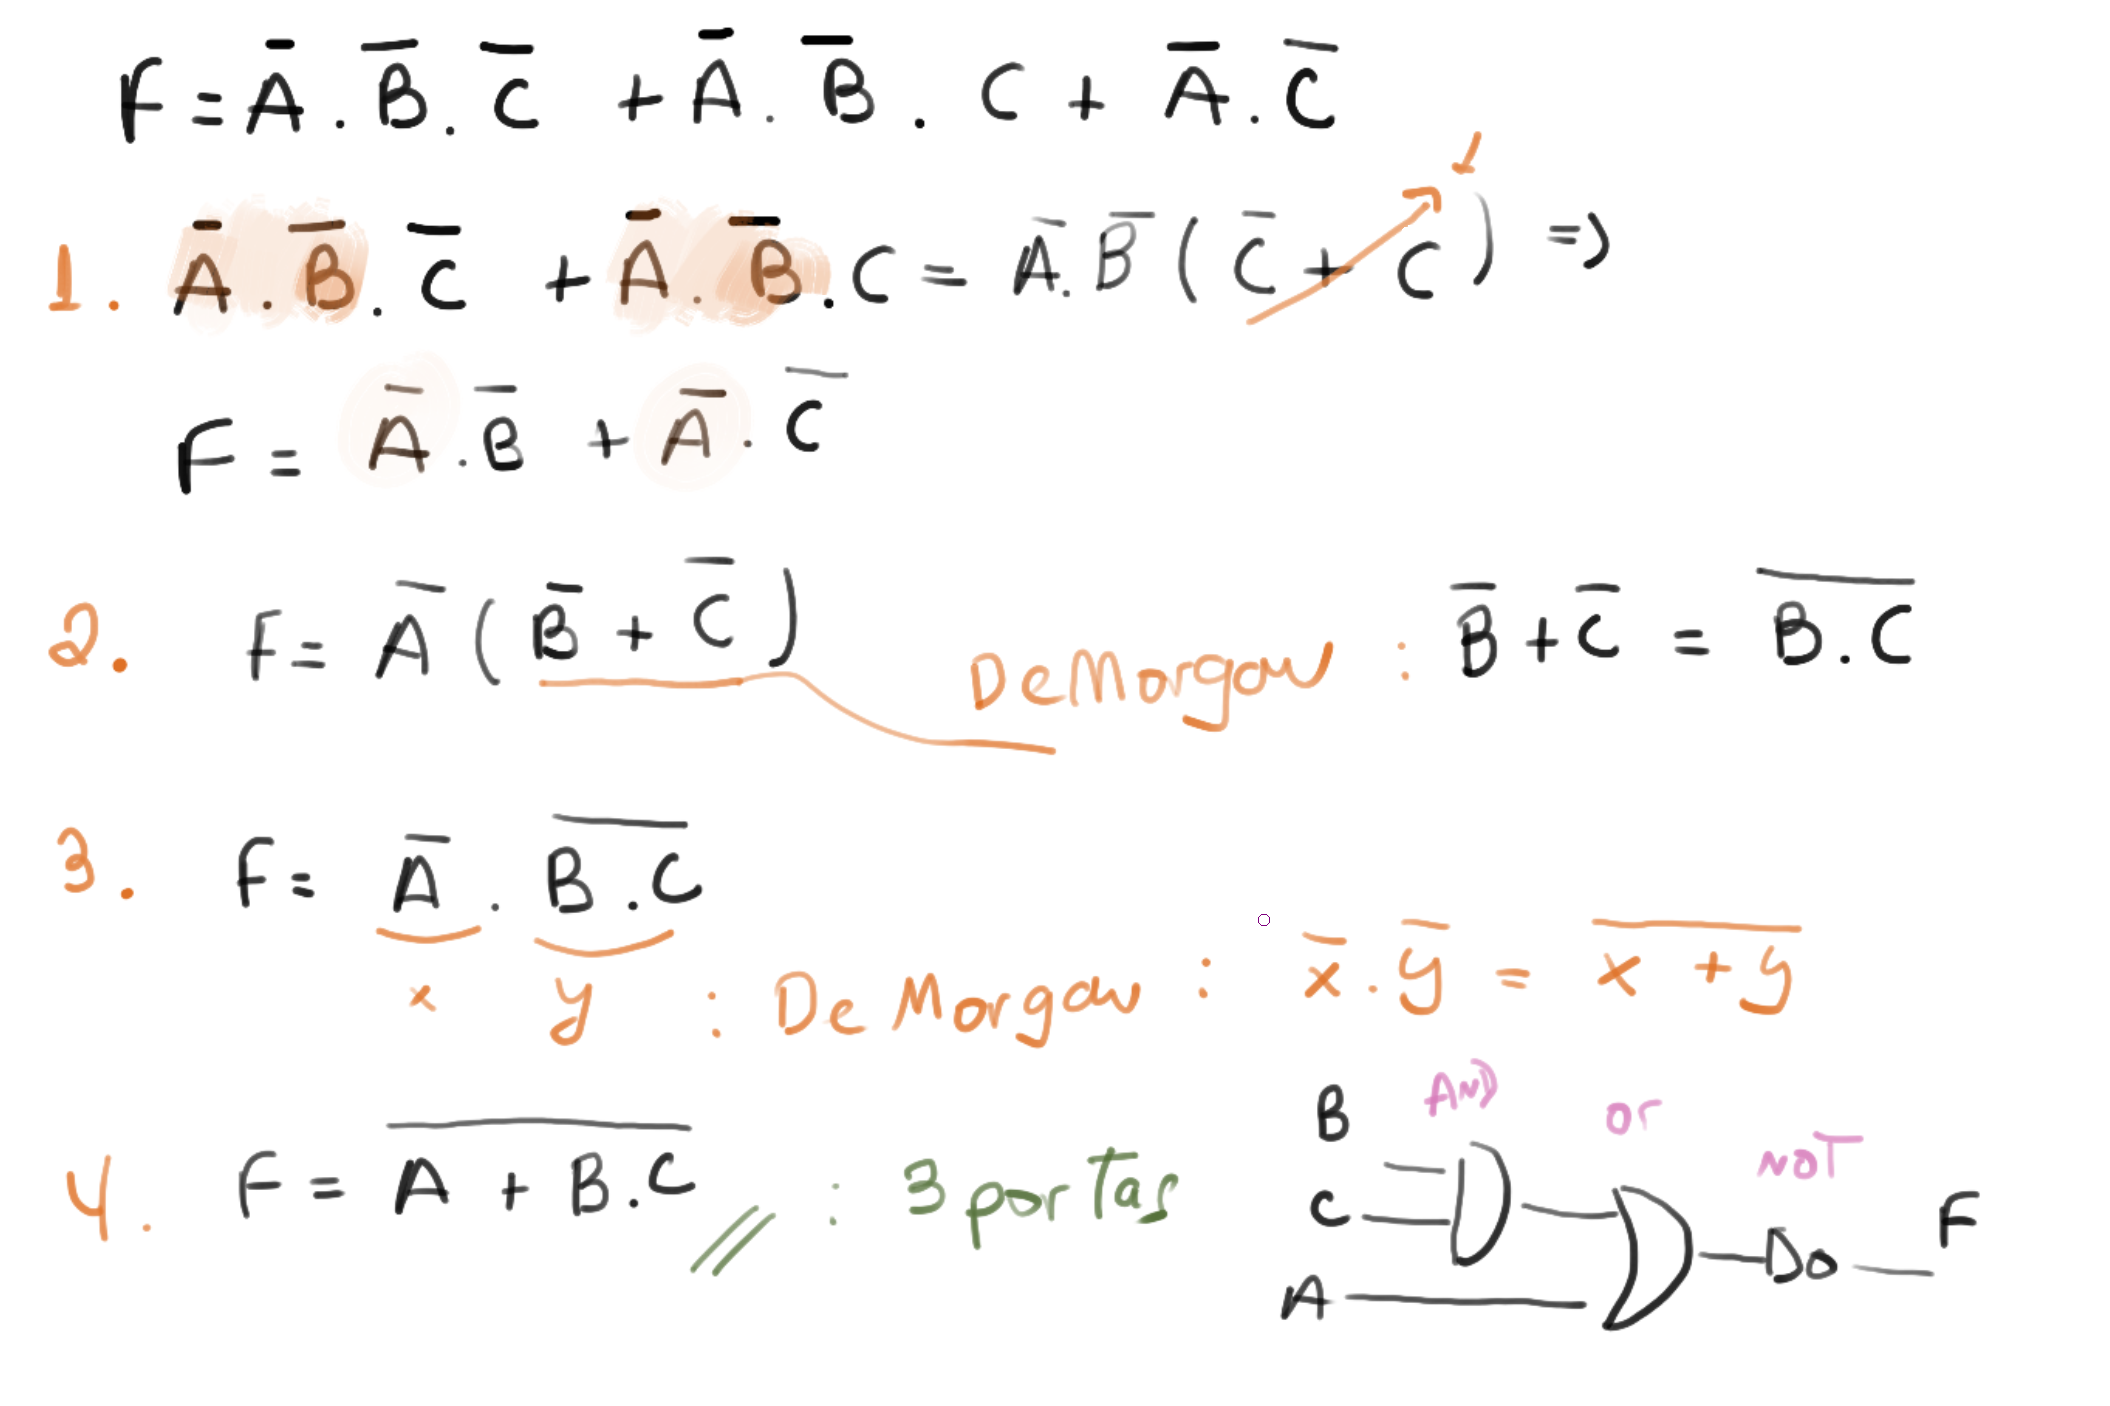 F = A̅ . B̅ . C̅ + A̅ . B̅ . C + A̅ . C̅
1
1. A̅ . B̅ . C̅ + A̅ . B̅ . C = A̅ . B̅ ( C̅ + C ) =>
F = A̅ . B̅ + A̅ . C̅
2. F = A̅ ( B̅ + C̅ ) DeMorgan : B̅ + C̅ = B̅ ̅.̅ ̅C̅
3. F = A̅ . B̅ ̅.̅ ̅C̅
x y : De Morgan : x̅ . y̅ = x̅ ̅+̅ ̅y̅
4. F = A̅ ̅+̅ ̅B̅ ̅.̅ ̅C̅ : 3 portas
B AND or NOT
C F
A